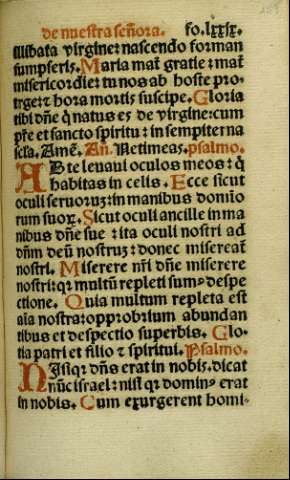 de nuestra señora. fo.lxxix.
illibata virgine: nascendo forman
sumpseris. Maria mat̄ gratie: mat̄
misericordie: tu nos ab hoste pro-
tege: ⁊ hora mortis suscipe. Gloria
tibi dñe q̄ natus es de virgine: cum
pr̄e et sancto spiritu: in sempiterna
scl̄a. Amē. Añ. Ne timeas. psalmo.
AD te levavi oculos meos: q̄
habitas in celis. Ecce sicut
oculi servoruꝫ: in manibus domino
rum suoꝝ. Sicut oculi ancille in ma
nibus dñe sue: ita oculi nostri ad
dñm deū nostruꝫ: donec misereat̄
nostri. Miserere nr̄i dñe miserere
nostri: qꝛ multū repleti sumꝰ despe
ctione. Quia multum repleta est
aīa nostra: opprobrium abundan
tibus et despectio superbis. Glo-
tia patri et filio ⁊ spiritui. Psalmo.
NIsi qꝛ dñs erat in nobis. dicat
nūc israel: nisi qꝛ dominꝰ erat
in nobis. Cum exurgerent homi-